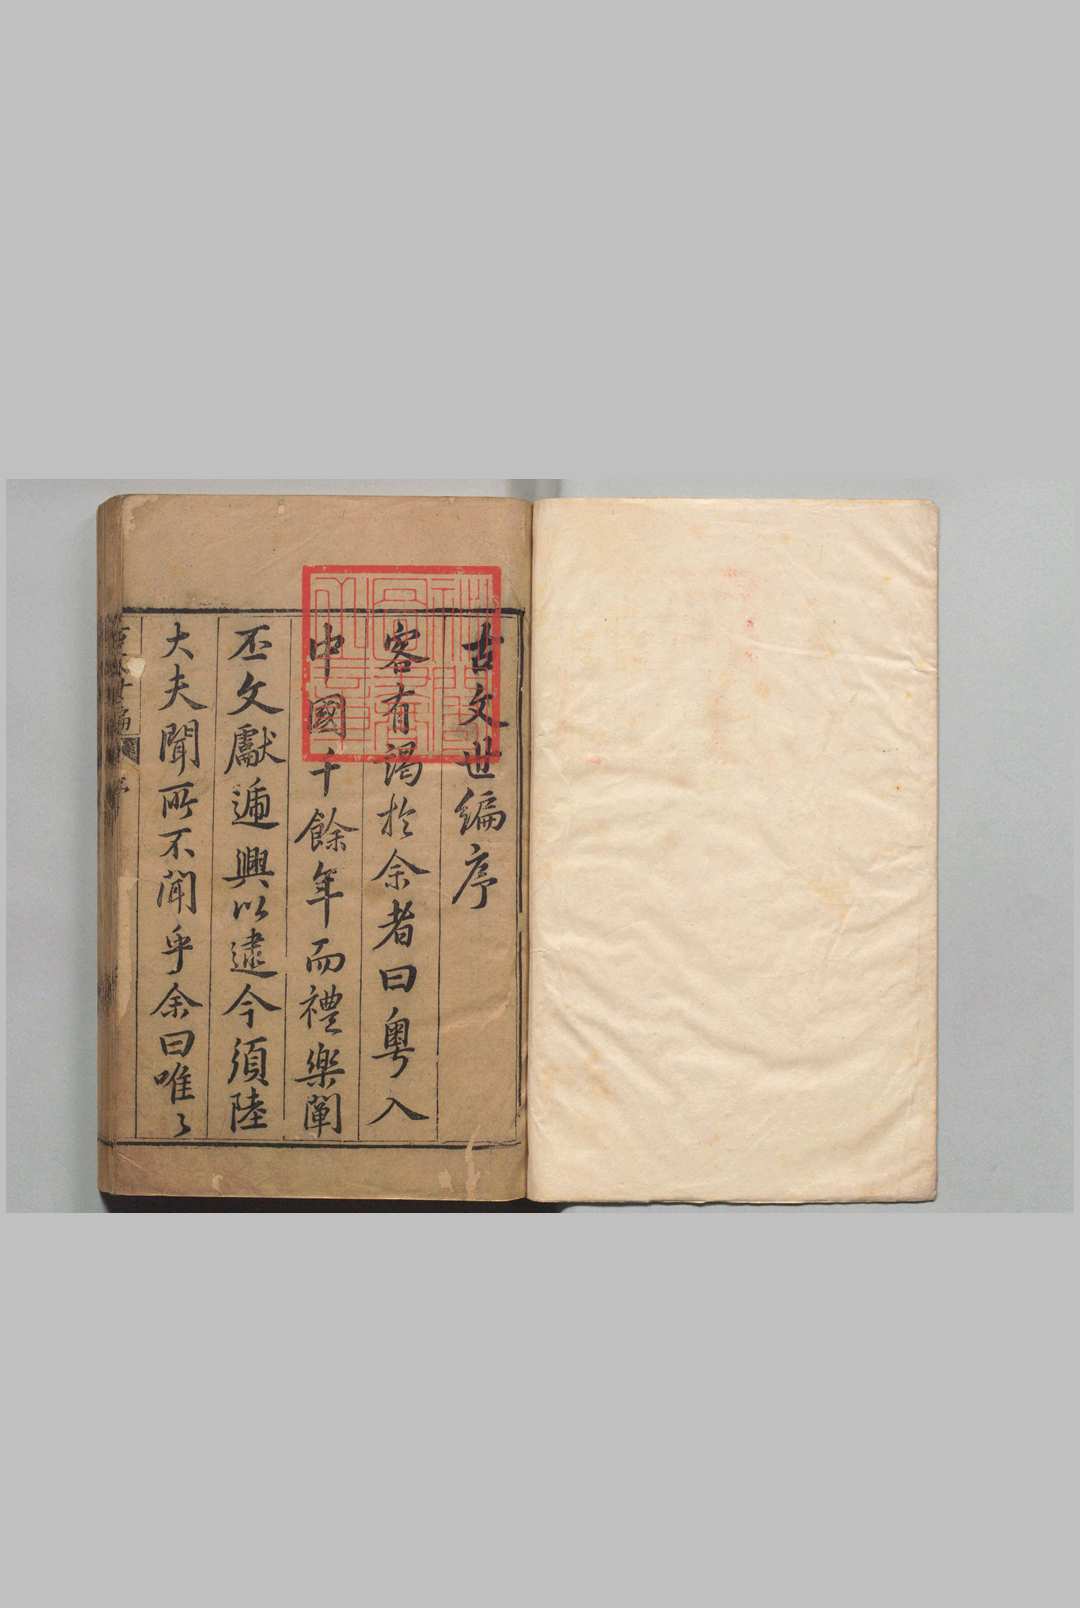 古文世編序
客有謁於余者曰粵入
中國千餘年而禮樂闡
丕文獻遞興以逮今須陸
大夫聞所不聞乎余曰唯〻
古文世編
序